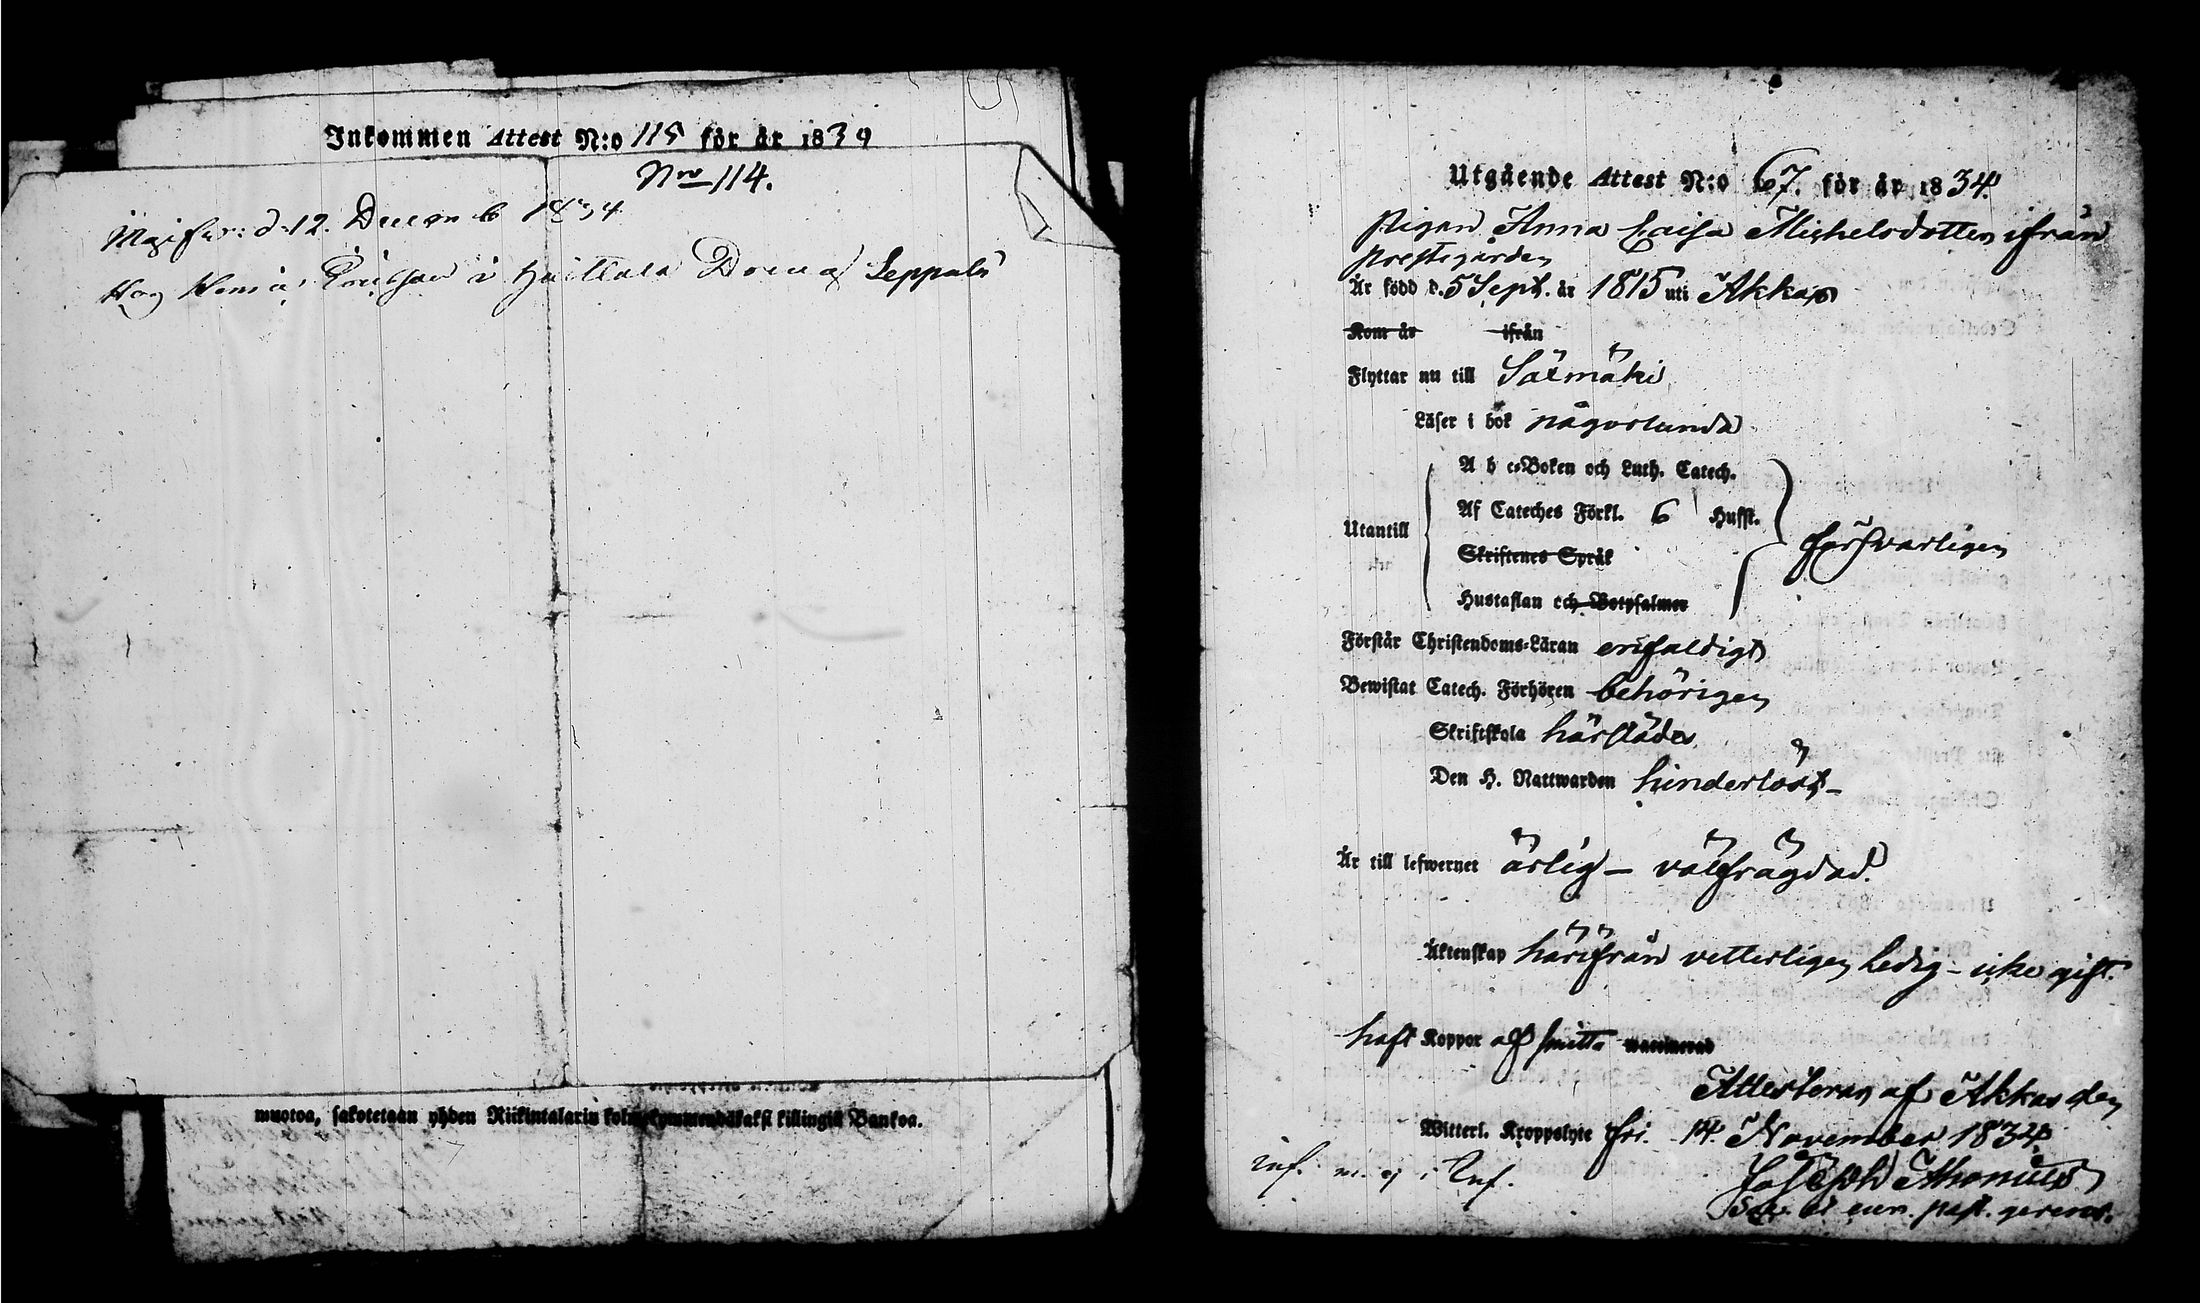 Inkommen Attest N:o 115 för år 1834
Nro 114.
d. 12. Decemb 1834
Hos i Huittula Leppälä
muotoa, sakotetaan yhden Riikintalarin kolmekymmendäkaksi killingiä Bankoa.
Utgående Attest N:o 67. för år 1834.
Pigan Anna Caisa Michelsdotter ifrån
Prestgården
Är född d. 5 Sept. år 1815 uti Akkas
Kom år ifrån
Flyttar nu till Säxmäki
Läser i bok någorlunda
A b c-Boken och Luth. Catech.
Af Cateches Förkl. 6 Hufst.
Utantill försvarligen
Skriftenes Språk
Hustaflan och Botpsalmer
Förstår Christendoms-Läran enfaldigt
Bewistat Catech. Förhören behörigen
Skriftskola härstädes
Den H. Nattwarden hinderlöst -
Är till lefwernet ärlig - välfrägdad.
Äktenskap härifrån vetterligen ledig - icke gift.
haft Koppor af smitta waccinerad
Attesteras af Akkas den
Witterl. Kroppslyte fri. 14 November 1834
inf. m. ej i Inf.
Joseph
past. gerens.